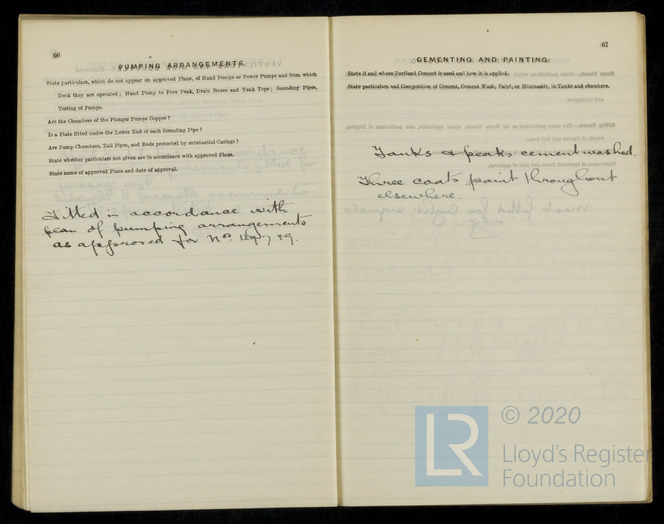 66
PUMPING ARRANGEMENTS.
State particulars, which do not appear on approved Plans, of Hand Pumps or Power Pumps and from which
Deck they are operated; Hand Pump to Fore Peak, Drain Boxes and Tank Tops; Sounding Pipes,
Testing of Pumps.
Are the Chambers of the Plunger Pumps Copper?
Is a Plate fitted under the Lower End of each Sounding Pipe?
Are Pump Chambers, Tail Pipes, and Rods protected by substantial Casings?
State whether particulars not given are in accordance with approved Plans.
State name of approved Plans and date of approval.
Fitted in accordance with
plan of pumping arrangements
as approved for Nos.
67
CEMENTING AND PAINTING.
State if and where Portland Cement is used and how it is applied.
State particulars and Composition of Cement, Cement Wash, Paint, or Bitumastic, in Tanks and elsewhere.
Tanks & peaks cement washed.
Three coats paint throughout
elsewhere.
LR
© 2020
Lloyd's Register
Foundation